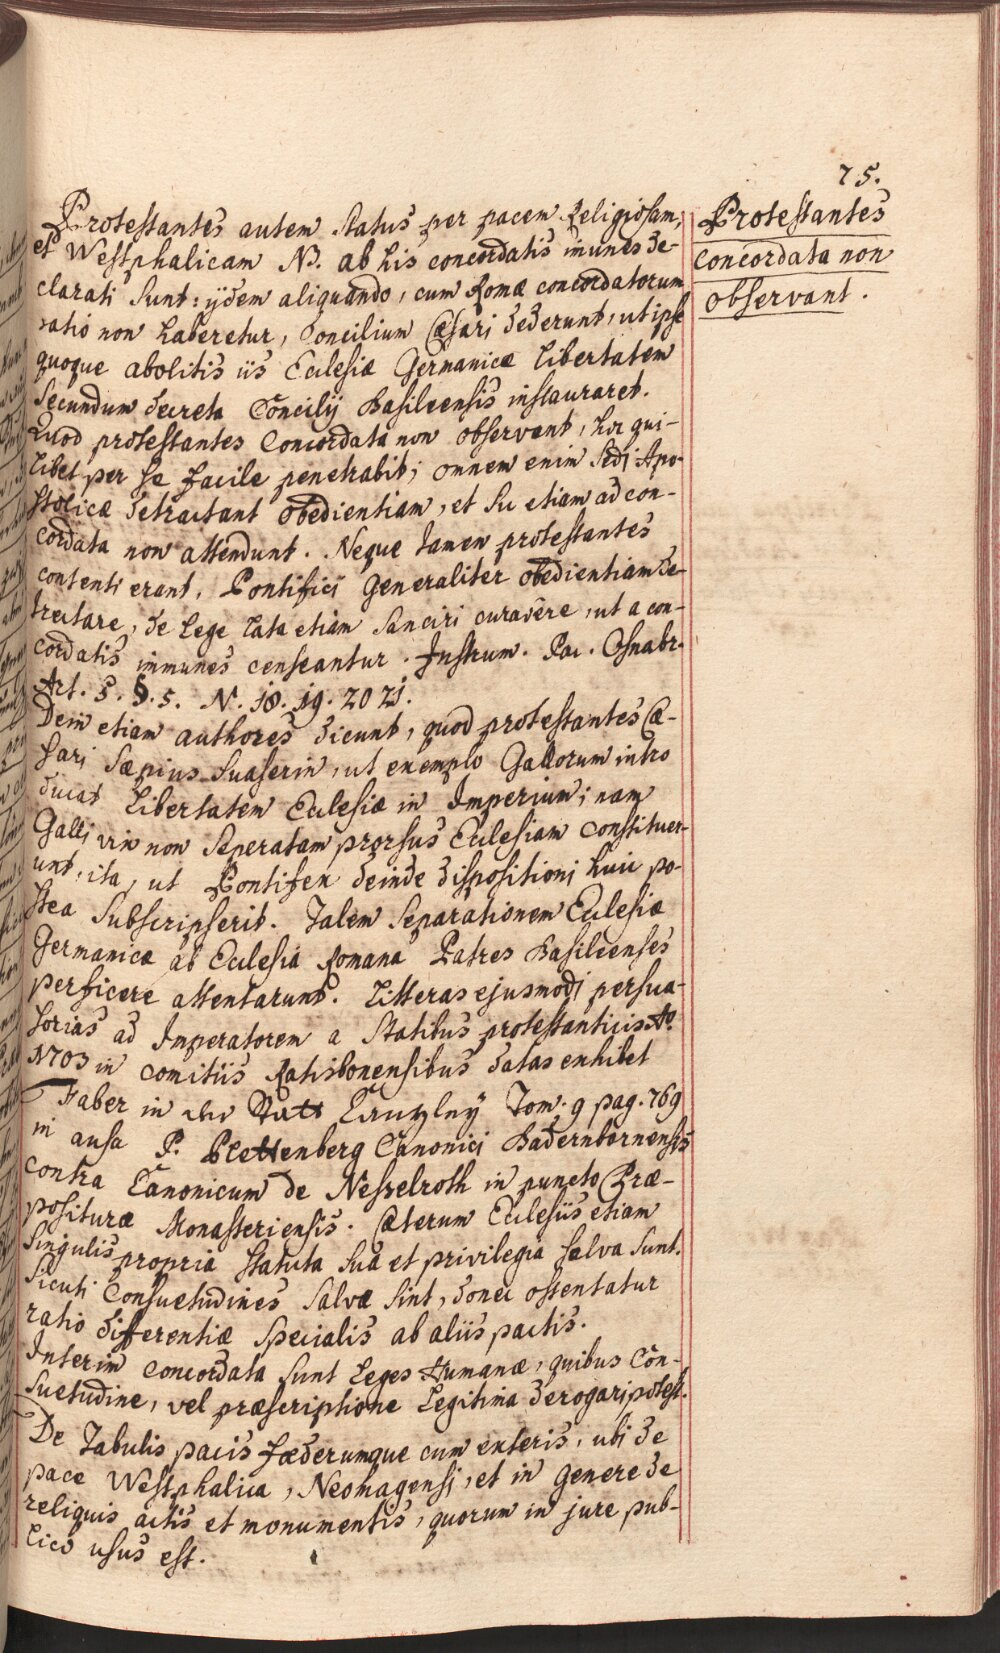 75.
Protestantes autem Status per pacem Religiosam,
et Westphalicam NB. ab his concordatis im̄unes de-
clarati Sunt: ijdem aliquando, cum Romæ concordatorum
ratio non haberetur, Concilium Cæsari dederunt, ut ipse
quoque abolitis iis Eclesiæ Germanicæ Libertatem
Secundum decreta Concilij Basileensis instauraret.
Quod protestantes Concordata non observant, hoc qui-
libet per se facile penetrabit; omnem enim Sedi Apo-
stolicæ detractant obedientiam, et Sic etiam ad con-
cordata non attendunt. Neque tamen protestantes
contenti erant, Pontifici Generaliter obedientiam de-
trectare, de Lege Lata etiam Sanciri curavêre, ut a con-
cordatis immunes censeantur. Instrum. Pac. Osnabr.
Art. 5. §. 5. N. 18. 19. 20 21.
Dein etiam authores dicunt, quod protestantes Cæ-
sari Sæpius Suaserin, ut exemplo Gallorum intro
ducat Libertatem Eclesiæ in Imperium; nam
Galli vix non Seperatam prorsus Eclesiam Constituer-
unt, ita, ut Pontifex deinde dispositioni huic po-
stea Subscripserit. Talem Separationem Eclesiæ
Germanicæ ab Eclesia Romana Patres Basileenses
perficere attentarunt. Litteras ejusmodi persua-
sorias ad Imperatorem a Statibus protestanticis Ao.
1703 in comitiis Ratisbonensibus datas exhibet
Faber in der Statt Cantzley Tom. 9 pag. 769
in ausa P. Plettenberg Canonici Badernbornensis
contra Canonicum de Nesselroth in puncto Præ-
posituræ Monasteriensis. Cæterum Eclesiis etiam
Singulis propria Statuta Sua et privilegia Salva Sunt.
Sicuti Consuetudines Salvæ Sint, donec ostentatur
ratio differentiæ Specialis ab aliis pactis.
Interim concordata Sunt Leges Humanæ, quibus Con-
suetudine, vel præscriptione Legitima derogari potest.
De Tabulis pacis fæderumque cum exteris, ubi de
pace Westphalica, Neomagensi, et in Genere de
reliquis actis et monumentis, quorum in jure pub-
lico usus est.
Protestantes
Concordata non
observant.